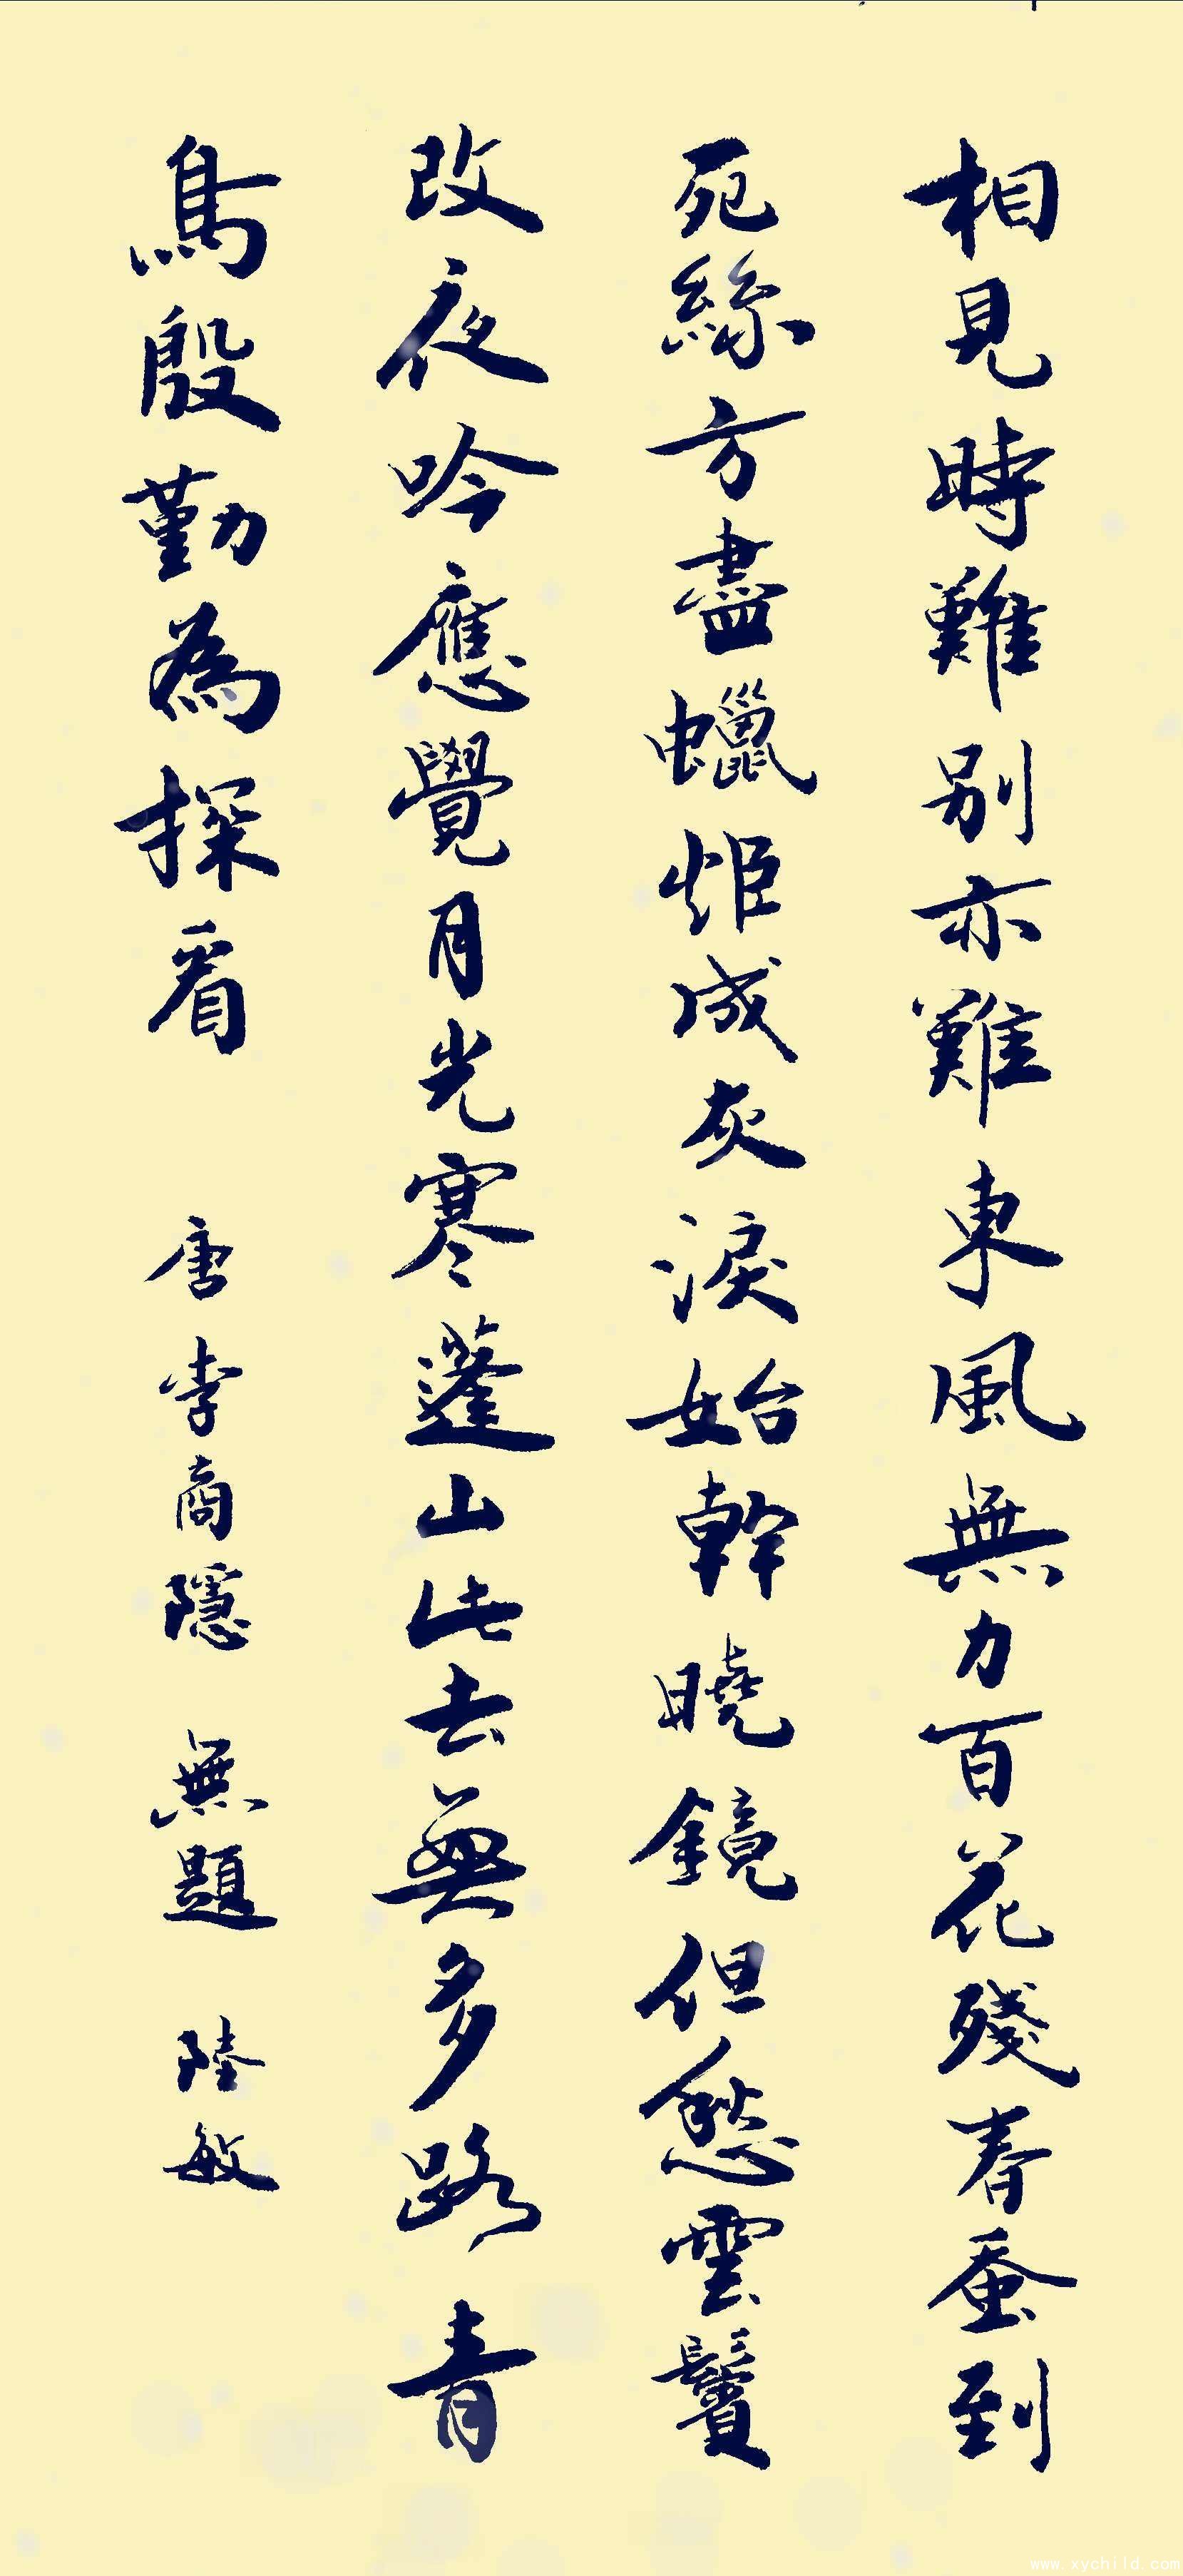 相見時難别亦難東風無力百花殘春蚕到
死絲方盡蠟炬成灰淚始幹曉鏡但愁雲鬢
改夜吟應覺月光寒蓬山此去無多路青
鳥殷勤為探看 唐李商隱 無題 陸敏
www.xychild.com